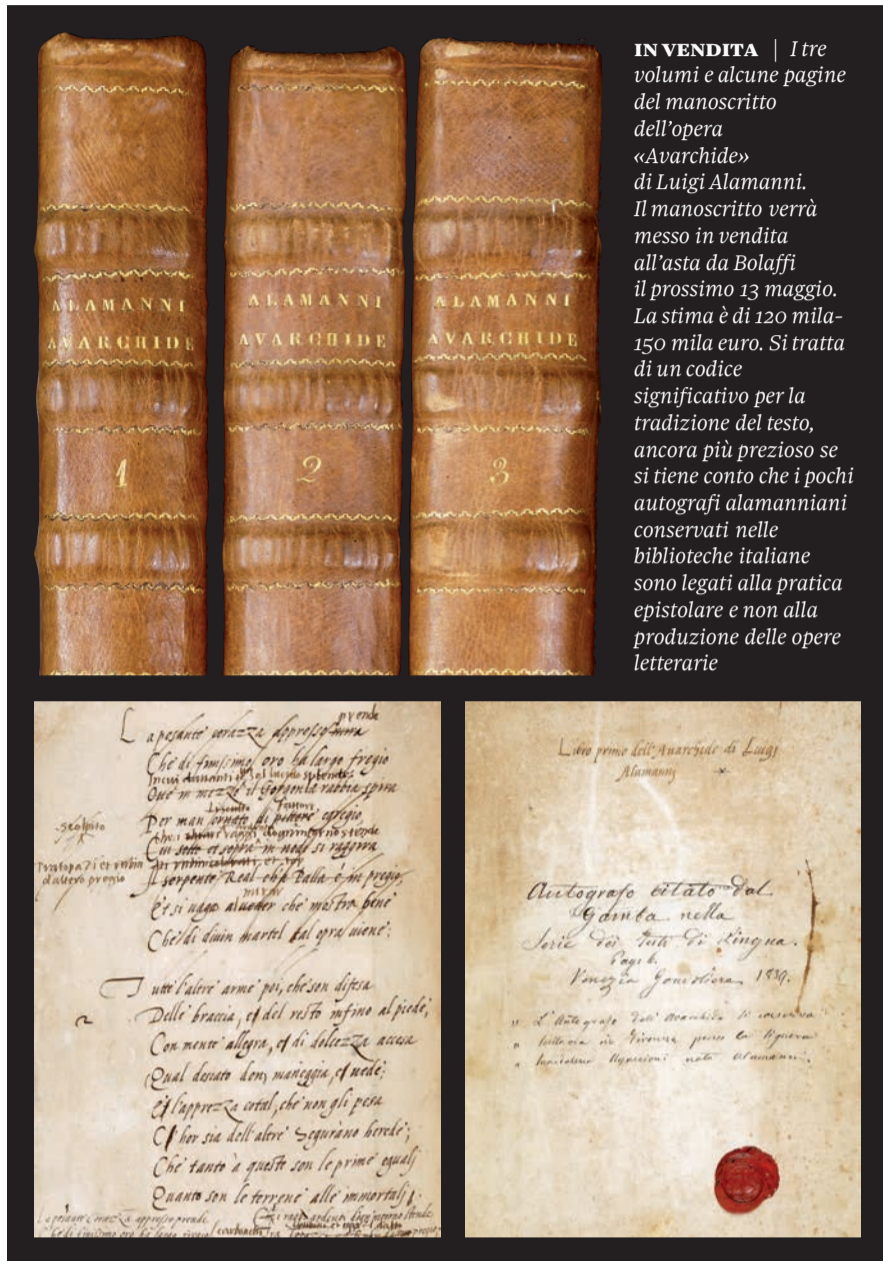 IN VENDITA | I tre
volumi e alcune pagine
del manoscritto
dell'opera
«Avarchide»
di Luigi Alamanni.
Il manoscritto verrà
messo in vendita
all'asta da Bolaffi
il prossimo 13 maggio.
La stima è di 120 mila-
150 mila euro. Si tratta
di un codice
significativo per la
tradizione del testo,
ancora più prezioso se
si tiene conto che i pochi
autografi alamanniani
conservati nelle
biblioteche italiane
sono legati alla pratica
epistolare e non alla
produzione delle opere
letterarie
ALAMANNI
AVARCHIDE
1
ALAMANNI
AVARCHIDE
2
ALAMANNI
AVARCHIDE
3
La pesante corazza appresso prende
Che di finissimo oro ha largo fregio
Gorgonea rabbia spira
Per man di egregio
scolpito
d'altero pregio
Il serpente Real che Palla è in pregio,
Et si vaga che mostra bene
Che di divin martel tal opra viene;
Tutte l'altre arme poi, che son difesa
Delle braccia, et del resto infino al piede,
Con mente allegra, et di dolcezza accesa
Qual descato don, maneggia, et vede;
Et l'apprezza cotal, che non gli pesa
C'hor sia dell'altre Segurano herede;
Che tanto à queste son le prime eguali
Quanto son le terrene alle immortali;
La pesante corazza appresso prende
Libro primo dell'Avarchide di Luigi
Alamanni
Autografo citato dal
Gamba nella
Serie dei Testi di Lingua.
Pag. 6.
Venezia Gondoliera 1839.
" L'Autografo dell'Avarchide si conserva
" tuttavia in Firenze presso la Signora
" nata Alamanni.